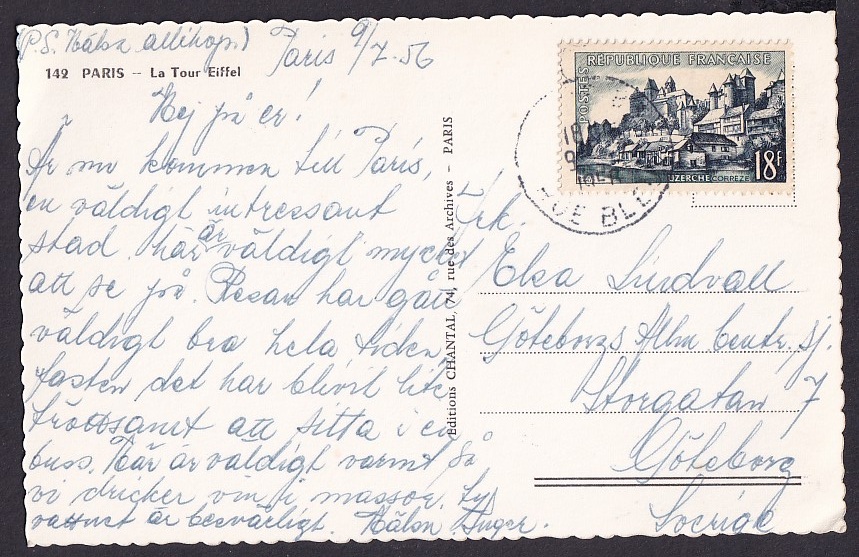 (P.S. Hälsa allihop.)
Paris 9/7-56
142 PARIS – La Tour Eiffel
Hej på er!
Är nu kommen till Paris,
en väldigt intressant
stad, här är väldigt mycket
att se på. Resan har gått
väldigt bra hela tiden
fasten det har blivit lite
tröttsamt att sitta i en
buss. Här är väldigt varmt så
vi dricker vin i massor, ty
vattnet är besvärligt. Hälsn. Inger.
Editions CHANTAL, 74, rue des Archives - PARIS
POSTES RÉPUBLIQUE FRANÇAISE
UZERCHE CORRÈZE 18F
RUE BLE
Frk.
Elsa Lindvall
Göteborgs Allm. Centr. sj.
Storgatan 7
Göteborg
Sverige